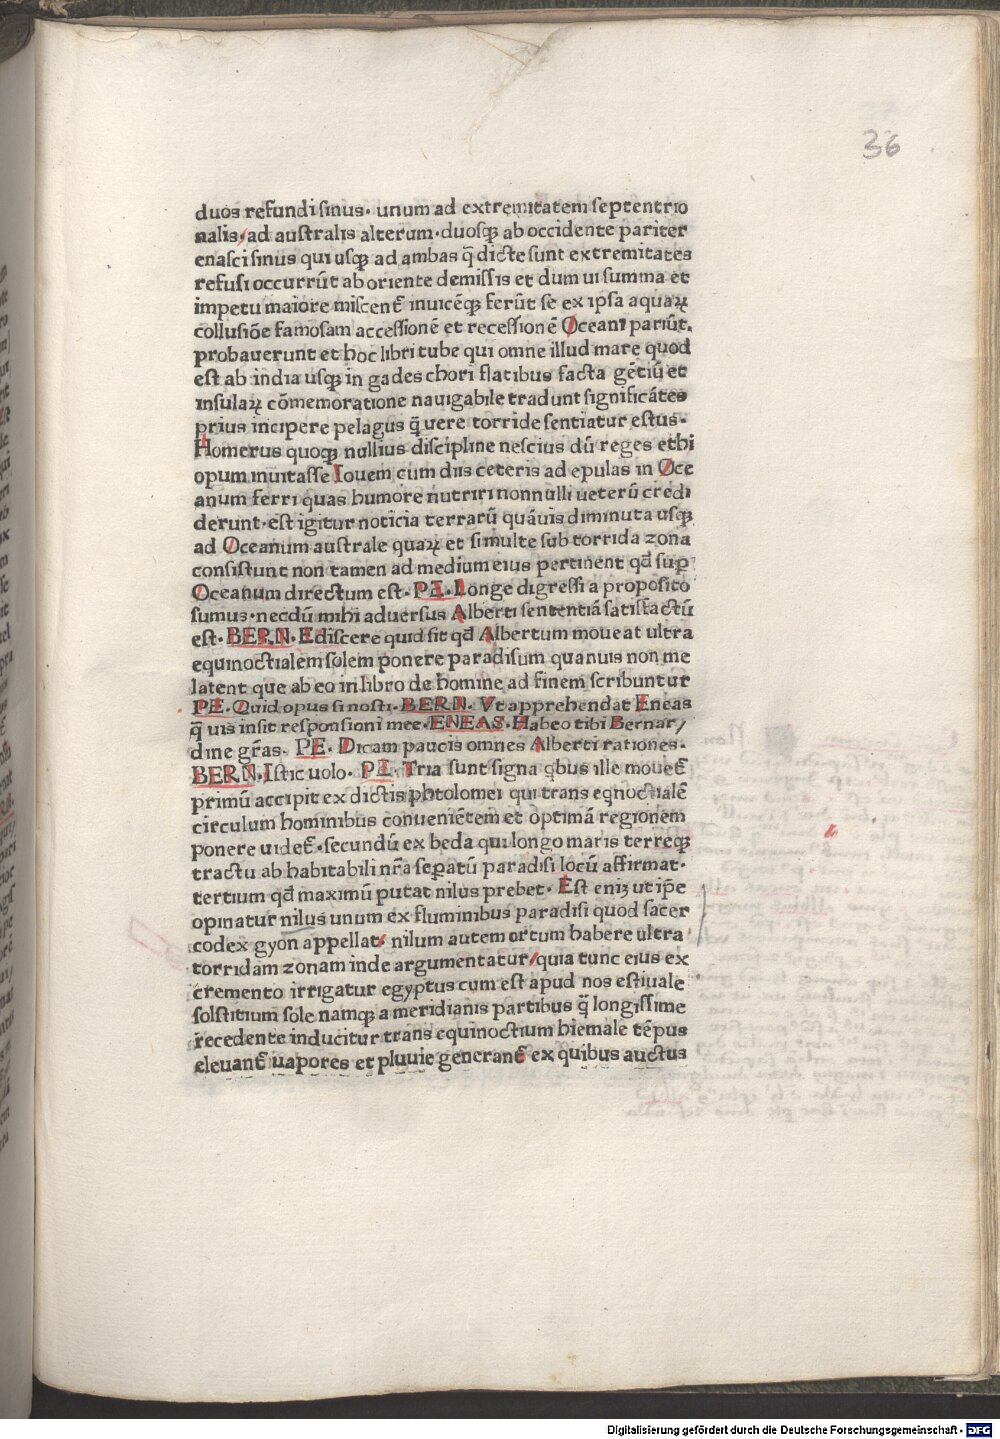 36
duos refundi sinus· unum ad extremitatem septentrio
nalis·/ad australis alterum·duosqꝫ ab occidente pariter
enasci sinus qui usqꝫ ad ambas q̄ dicte sunt extremitates
refusi occurrūt ab oriente demissis et dum ui summa et
impetu maiore miscenť inuicēqꝫ ferūt se ex ipsa aquaꝝ
collusiōe famosam accessionē et recessionē Oceani pariūt.
probauerunt et hoc libri tube qui omne illud mare quod
est ab india usqꝫ in gades chori flatibus facta gētiū et
insulaꝝ cōmemoratione nauigabile tradunt significātes
prius incipere pelagus q̄ uere torride sentiatur estus·
Homerus quoqꝫ nullius discipline nescius dū reges ethi
opum inuitasse Iouem cum diis ceteris ad epulas in Oce
anum ferri quas humore nutriri nonnulli ueterū credi
derunt·est igitur noticia terrarū quāuis diminuta usqꝫ
ad Oceanum australe quaꝝ et si multe sub torrida zona
consistunt non tamen ad medium eius pertinent qđ sup̄
Oceanum directum est· PE· Longe digressi a proposito
sumus·necdū mihi aduersus Alberti sententiā satisfactū
est· BERN· Ediscere quid sit qđ Albertum moueat ultra
equinoctialem solem ponere paradisum quanuis non me
latent que ab eo in libro de homine ad finem scribuntur
PE· Quid opus si nosti· BERN· Vt apprehendat Eneas
q̄ uis insit responsioni mee·ENEAS·Habeo tibi Bernar/
dine gr̄as· PE· Dicam paucis omnes Alberti rationes·
BERN·Istic uolo· PE· Tria sunt signa qbus ille moueť
primū accipit ex dictis phtolomei qui trans eqnoctialē
circulum hominibus conueniētem et optimā regionem
ponere uideť·secundū ex beda qui longo maris terreqꝫ
tractu ab habitabili nr̄a sep̄atū paradisi locū affirmat·
tertium qđ maximū putat nilus prebet· Est enīꝫ ut ip̄e
opinatur nilus unum ex fluminibus paradisi quod sacer
codex gyon appellat· nilum autem ortum habere ultra
torridam zonam inde argumentatur/quia tunc eius ex
cremento irrigatur egyptus cum est apud nos estiuale
solstitium sole namqꝫ a meridianis partibus q̄ longissime
recedente inducitur trans equinoctium hiemale tēpus
eleuanť uapores et pluuie generanť ex quibus auctus
Digitalisierung gefördert durch die Deutsche Forschungsgemeinschaft - DFG